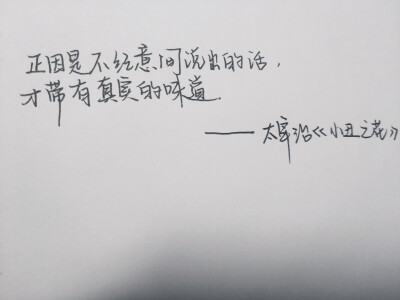 正因是不经意间说出的话，
才带有真实的味道.
——太宰治《小丑之花》